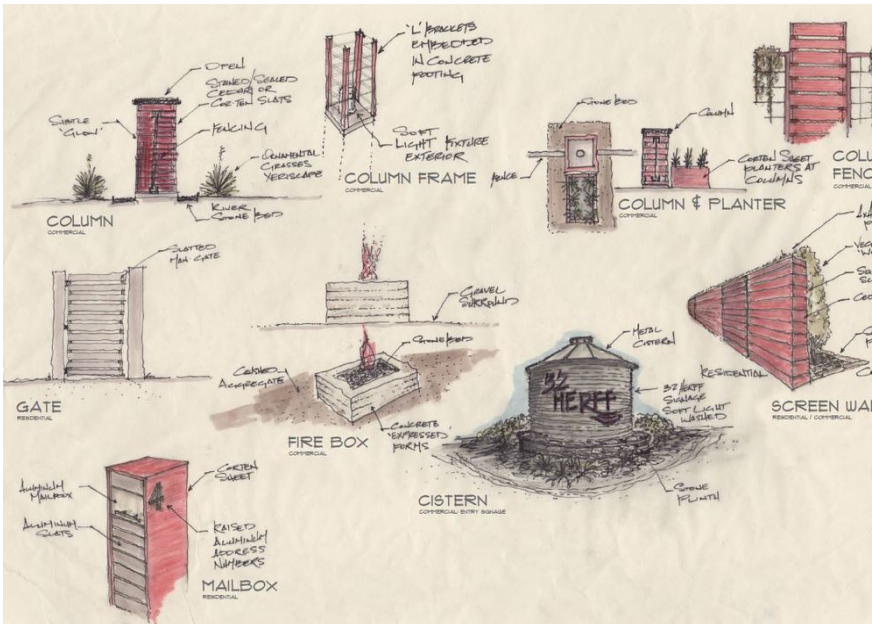 OPEN
STAINED/SEALED
CEDAR OR
COR-TEN SLATS
SUBTLE
'GLOW'
FENCING
ORNAMENTAL
GRASSES
XERISCAPE
RIVER
STONE/BED
COLUMN
COMMERCIAL
'L' BRACKETS
EMBEDDED
IN CONCRETE
FOOTING
SOFT
LIGHT FIXTURE
EXTERIOR
COLUMN FRAME
COMMERCIAL
STONE/BED
FENCE
COLUMN
CORTEN SHEET
PLANTERS AT
COLUMNS
COLUMN & PLANTER
COMMERCIAL
COLU
FENC
COMMERCIAL
SLATTED
MAN-GATE
GATE
RESIDENTIAL
GRAVEL
SURROUND
STONE/BED
CRUSHED
AGGREGATE
CONCRETE
EXPRESSED
FORMS
FIRE BOX
COMMERCIAL
METAL
CISTERN
32
HERFF
32 HERFF
SIGNAGE
SOFT LIGHT
WASHED
STONE
PLINTH
CISTERN
COMMERCIAL: ENTRY SIGNAGE
RESIDENTIAL
SCREEN WA
RESIDENTIAL / COMMERCIAL
ALUMINUM
MAILBOX
ALUMINUM
SLATS
4
CORTEN
SHEET
RAISED
ALUMINUM
ADDRESS
NUMBERS
MAILBOX
RESIDENTIAL